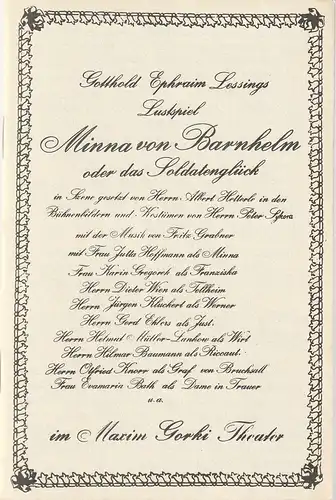 Gotthold Ephraim Lessings
Lustspiel
Minna von Barnhelm
oder das Soldatenglück
in Szene gesetzt von Herrn Albert Hetterle in den
Bühnenbildern und Kostümen von Herrn Peter
mit der Musik von Fritz Grabner
mit Frau Jutta Hoffmann als Minna
Frau Karin Gregorek als Franziska
Herrn Dieter Wien als Tellheim
Herrn Jürgen Kluckert als Werner
Herrn Gerd Ehlers als Just.
Herrn Helmut Müller-Lankow als Wirt
Herrn Hilmar Baumann als Riccaut.
Herrn Otfried Knorr als Graf von Bruchsall
Frau Evamaria Bath als Dame in Trauer
u.a.
im Maxim Gorki Theater